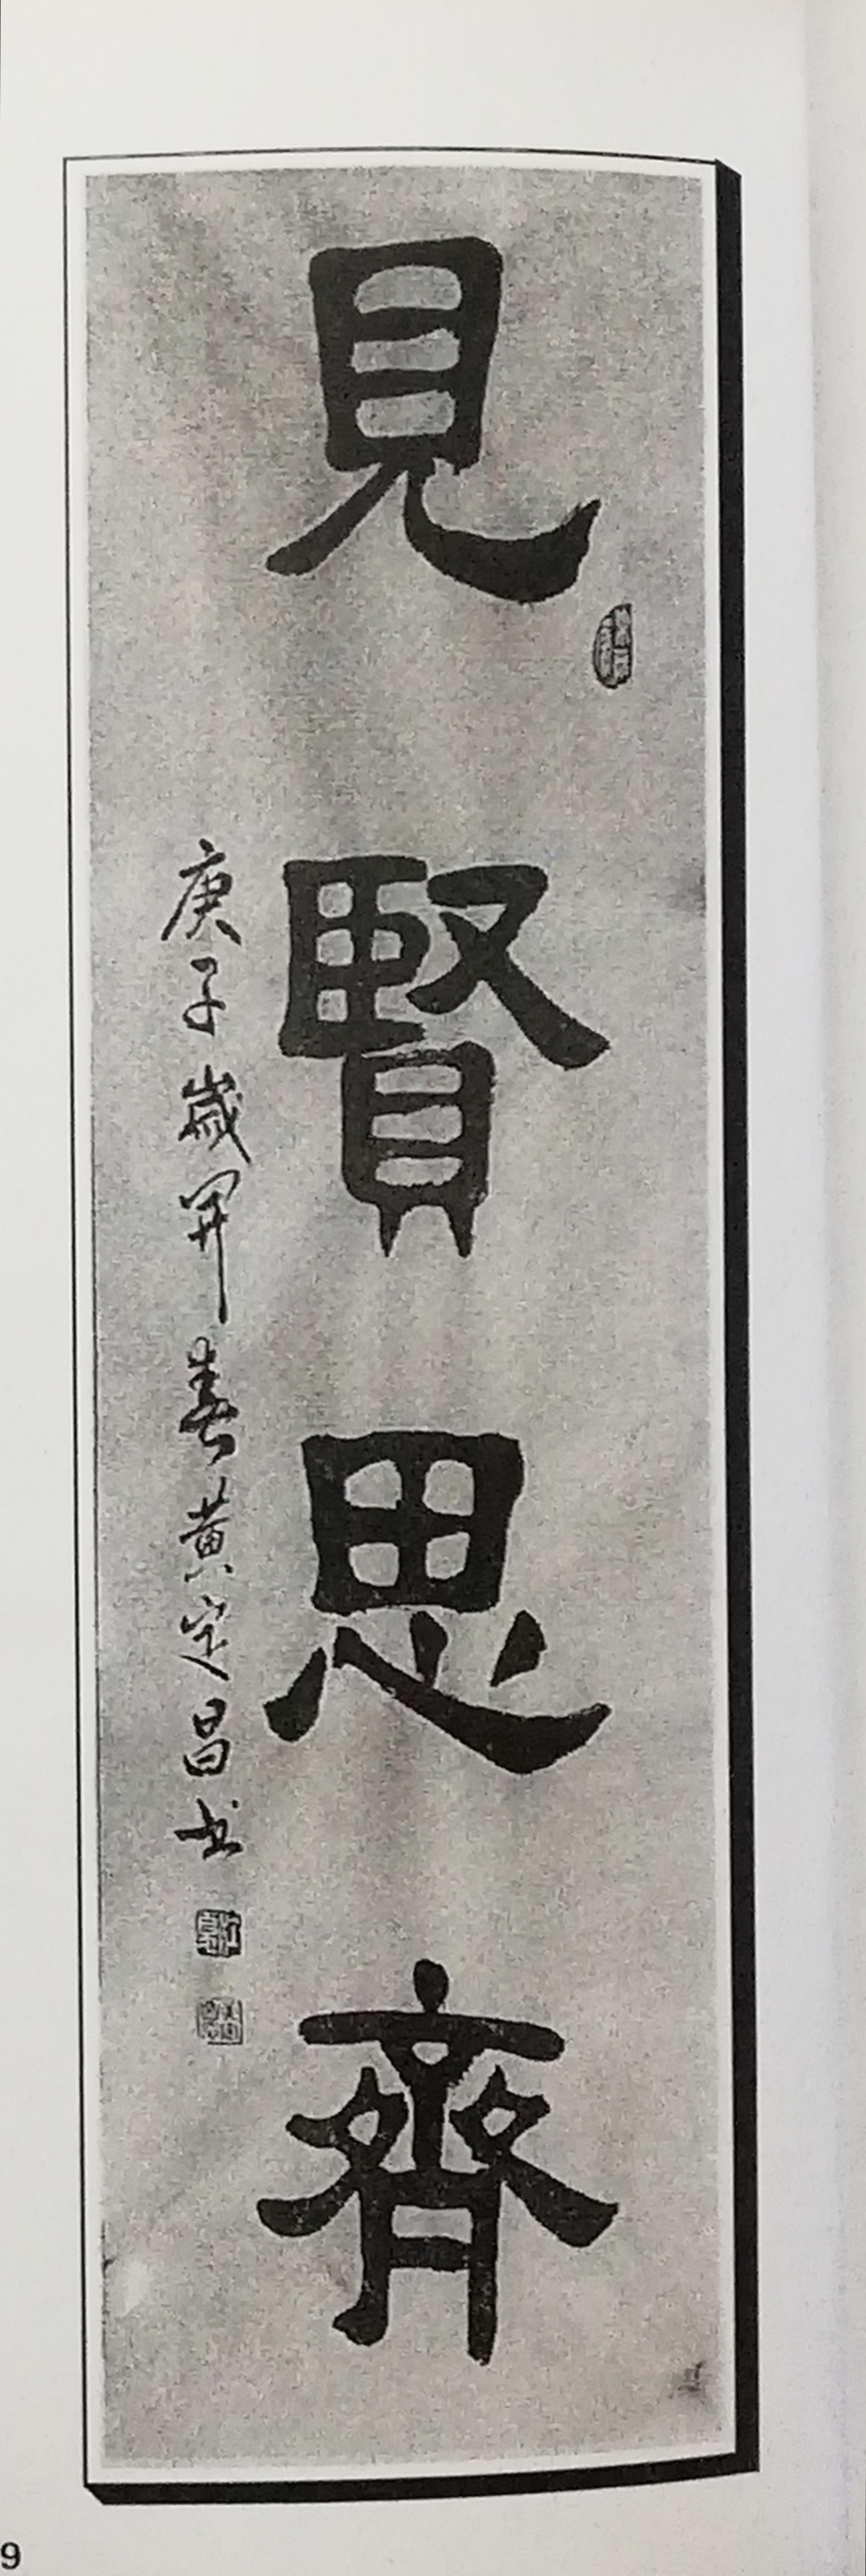 見賢思齊
庚子歲開春黄定昌书
9